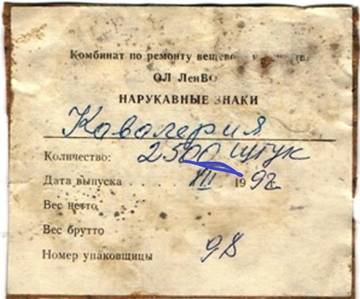 Комбинат по ремонту вещево
ОЛ ЛенВО
НАРУКАВНЫЕ ЗНАКИ
Кавалерия
Количество: 2500 штук
Дата выпуска . . . . . III 1992
Вес нетто
Вес брутто
Номер упаковщицы 98